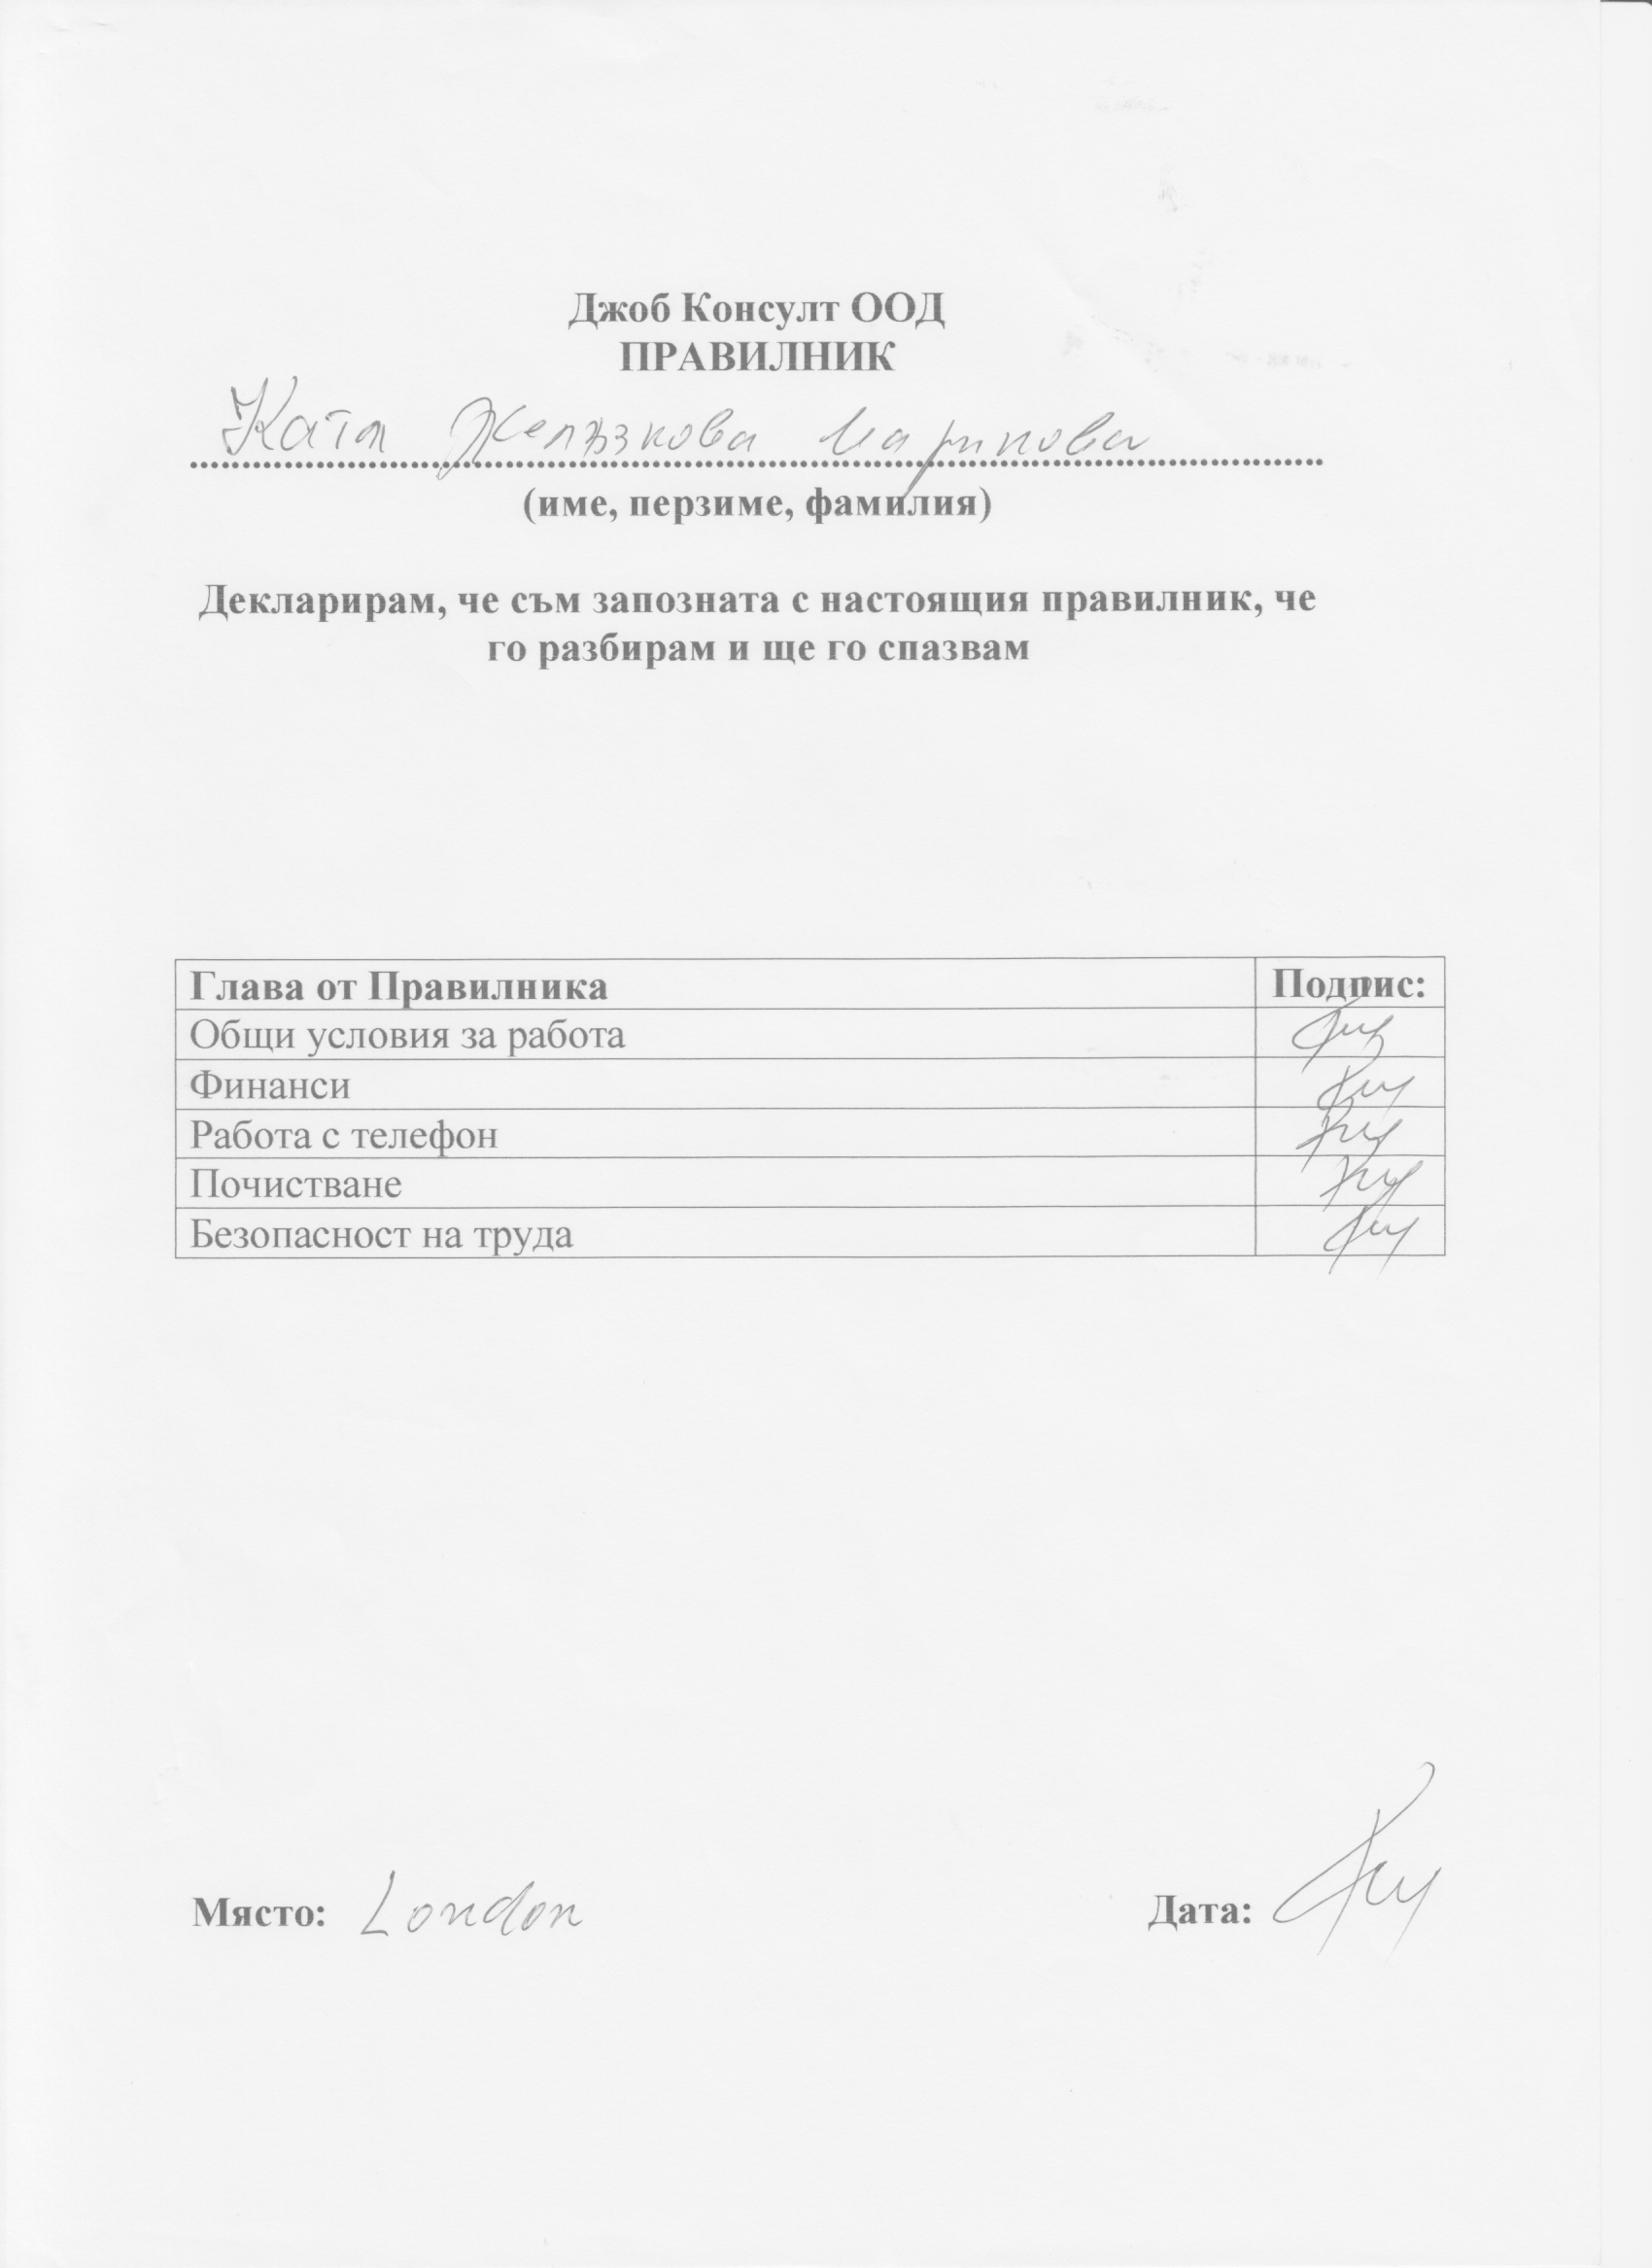 Джоб Консулт ООД
ПРАВИЛНИК
Катя Желязкова Маринова
(име, перзиме, фамилия)
Декларирам, че съм запозната с настоящия правилник, че
го разбирам и ще го спазвам
Глава от Правилника Подпис:
Общи условия за работа
Финанси
Работа с телефон
Почистване
Безопасност на труда
Място: London Дата: